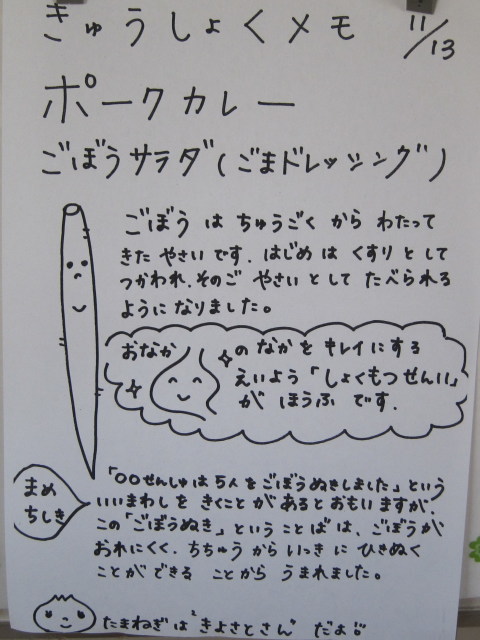 きゅうしょくメモ 11/13
ポークカレー
ごぼうサラダ(ごまドレッシング)
ごぼう は ちゅうごく から わたって
きた やさい です. はじめ は くすり と して
つかわれ. そのご やさい と して たべられる
ように なりました。
おなか の なか を キレイ に する
えいよう「しょくもつ せんい」
が ほうふ です.
まめ
ちしき
「○○せんしゅ は 5人 を ごぼうぬき しました」という
いいまわし を きくこと が ある と おもいますが、
この「ごぼうぬき」という ことば は、ごぼう が
おれにくく. ちちゅう から いっき に ひきぬく
ことが できる ことから うまれました。
たまねぎ は "きよさとさん" だよ!!